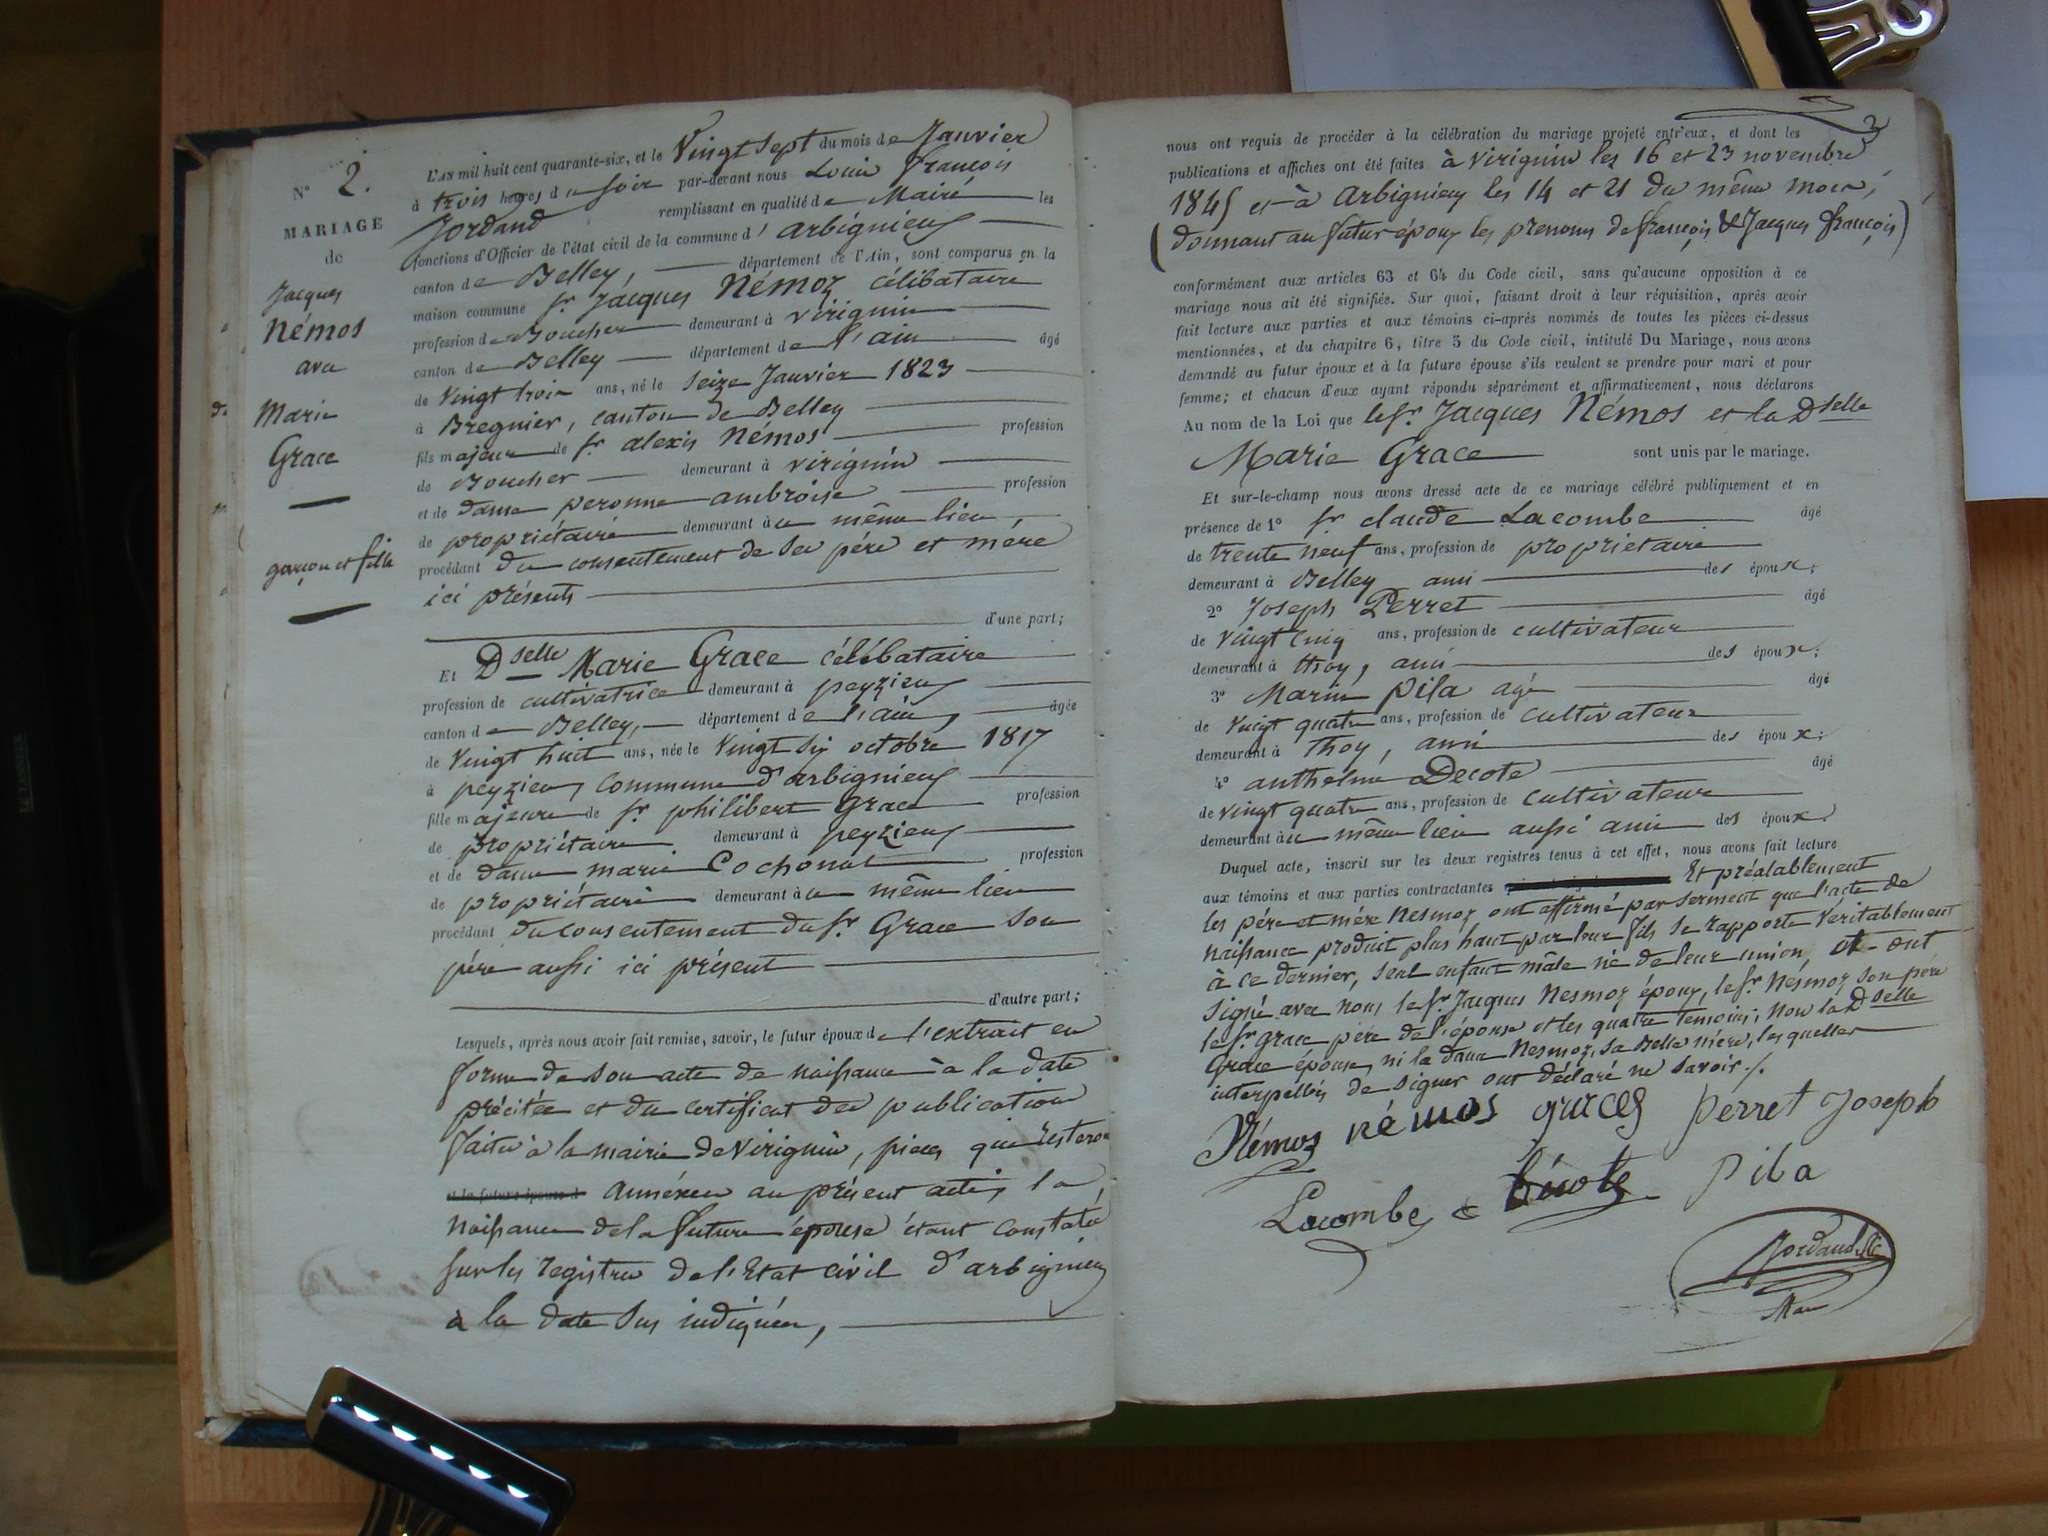 N° 2.
MARIAGE
de
Jacques
Némos
avec
Marie
Grace
garçon et fille
L'AN mil huit cent quarante-six, et le Vingt sept du mois de Janvier
à trois heures du soir par-devant nous Louis François
Jordand remplissant en qualité de Maire les
fonctions d'Officier de l'état civil de la commune d'arbignieu
canton de Belley, département de l'Ain, sont comparus en la
maison commune Sr. Jacques Némoz célibataire
profession de Boucher demeurant à virignin
canton de Belley département de l'ain âgé
de Vingt trois ans, né le seize Janvier 1823
à Bregnier, canton de Belley
fils majeur de Sr. alexis Némos profession
de Boucher demeurant à virignin
et de dame peronne ambroise profession
de propriétaire demeurant au même lieu
procédant du consentement de ses père et mère
ici présents
d'une part;
Et Dselle Marie Grace célébataire
profession de cultivatrice demeurant à peyzieu
canton de Belley, département de l'ain, âgée
de Vingt huit ans, née le Vingt six octobre 1817
à peyzieu, commune d'arbignieu
fille majeure de Sr. philibert Grace profession
de propriétaire demeurant à peyzieu
et de dame marie Cochonat profession
de propriétaire demeurant au même lieu
procédant du consentement du Sr. Grace son
père aussi ici présent
d'autre part;
Lesquels, après nous avoir fait remise, savoir, le futur époux de l'extrait en
forme de son acte de naissance à la date
précitée et du certificat des publications
faites à la mairie de Virignin, pièces qui resteront
et la future épouse d annéxées au présent acte, la
Naissance de la future épouse étant constatée
sur les registres de l'Etat civil d'arbignieu
à la date sus indiquée,
nous ont requis de procéder à la célébration du mariage projeté entr'eux, et dont les
publications et affiches ont été faites à virignin les 16 et 23 novembre
1845 et à arbignieu les 14 et 21 du même mois,
(donnant au futur époux les prenoms de françois & Jacques françois)
conformément aux articles 63 et 64 du Code civil, sans qu'aucune opposition à ce
mariage nous ait été signifiée. Sur quoi, faisant droit à leur réquisition, après avoir
fait lecture aux parties et aux témoins ci-après nommés de toutes les pièces ci-dessus
mentionnées, et du chapitre 6, titre 5 du Code civil, intitulé Du Mariage, nous avons
demandé au futur époux et à la future épouse s'ils veulent se prendre pour mari et pour
femme; et chacun d'eux ayant répondu séparément et affirmativement, nous déclarons
Au nom de la Loi que le Sr. Jacques Némos et la Dselle
Marie Grace sont unis par le mariage.
Et sur-le-champ nous avons dressé acte de ce mariage célébré publiquement et en
présence de 1° Sr. claude Lacombe âgé
de trente neuf ans, profession de propriétaire
demeurant à Belley ami des époux;
2° Joseph Perret âgé
de Vingt cinq ans, profession de cultivateur
demeurant à thoy, ami des époux;
3° Marin pila agé âgé
de Vingt quatre ans, profession de cultivateur
demeurant à thoy, ami des époux;
4° anthelme Decote âgé
de vingt quatre ans, profession de cultivateur
demeurant au même lieu aussi ami des époux.
Duquel acte, inscrit sur les deux registres tenus à cet effet, nous avons fait lecture
aux témoins et aux parties contractantes Et préalablement
les père et mère Nesmoz ont affirmé par serment que l'acte de
naissance produit plus haut par leur fils se rapporte Véritablement
à ce dernier, seul enfant mâle né de leur union, et ont
signé avec nous le Sr. Jacques Nesmoz époux, le Sr. Nésmoz son père
le Sr. grace père de l'épouse et les quatre temoins; non la Dselle
Grace épouse, ni la dame Nesmoz, sa Belle mère, lesquelles
interpellées de signer ont déclaré ne savoir ./.
Némoz némos graces perret Joseph
Lacombe C Décote Pila
Jordand
Mair